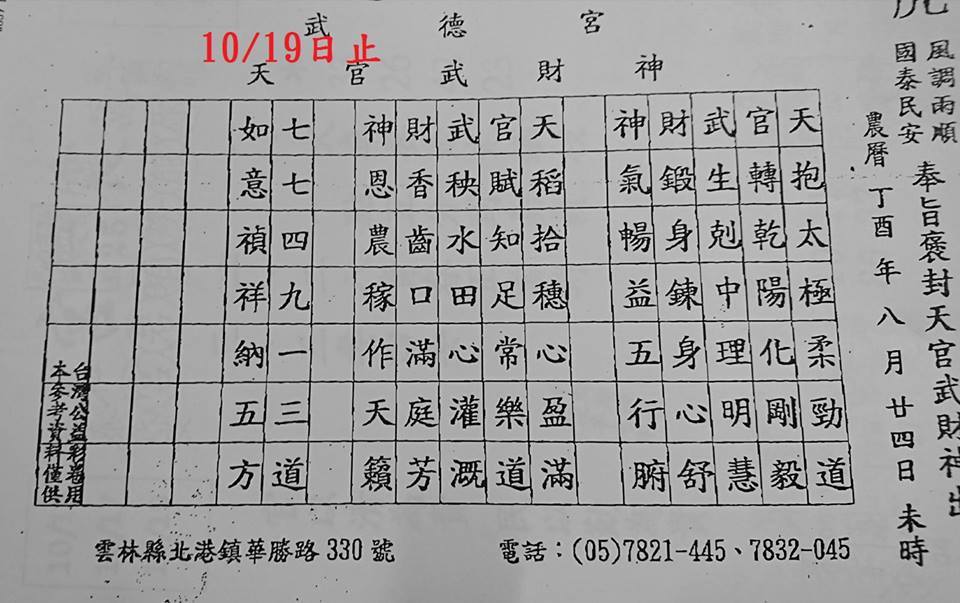 武德宮
10/19日止
天官武財神
風調雨順
國泰民安
奉旨褒封天官武財神出
農曆丁酉年八月廿四日未時
天抱太極柔勁道
官轉乾陽化剛毅
武生剋中理明慧
財鍛身鍊身心舒
神氣暢益五行腑
天稻拾穗心盈滿
官賦知足常樂道
武秧水田心灌溉
財香齒口滿庭芳
神恩農稼作天籟
七七四九一三道
如意禎祥納五方
台灣公益彩卷用
本參考資料僅供
雲林縣北港鎮華勝路330號
電話：(05)7821-445、7832-045